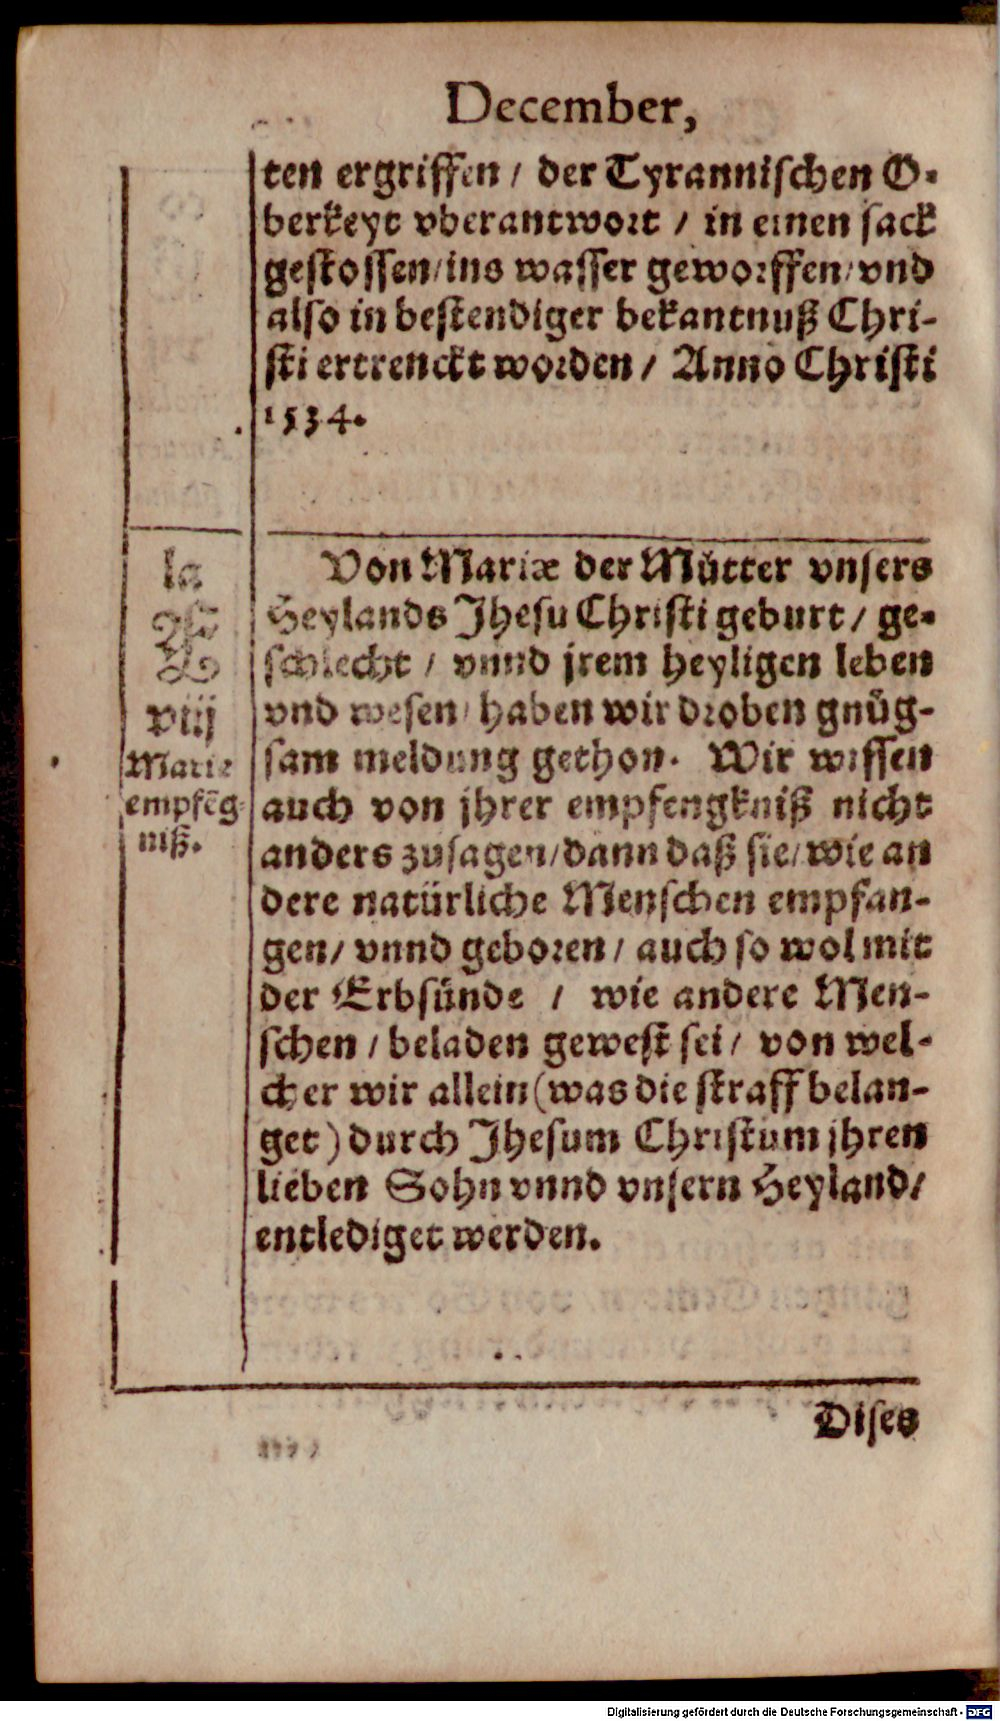 December,
ten ergriffen / der Tyrannischen O-
berkeyt vberantwort / in einen sack
gestossen/ins wasser geworffen/vnd
also in bestendiger bekantnuß Chri-
sti ertrenckt worden / Anno Christi
1534.
la
viij
Marie
empfẽg-
niß.
Von Mariæ der Můtter vnsers
Heylands Jhesu Christi geburt / ge-
schlecht / vnnd jrem heyligen leben
vnd wesen/ haben wir droben gnůg-
sam meldung gethon. Wir wissen
auch von jhrer empfengkniß nicht
anders zusagen/dann daß sie/wie an
dere natürliche Menschen empfan-
gen/ vnnd geboren / auch so wol mit
der Erbsünde / wie andere Men-
schen / beladen gewest sei / von wel-
cher wir allein (was die straff belan-
get) durch Jhesum Christum jhren
lieben Sohn vnnd vnsern Heyland/
entlediget werden.
Dises
Digitalisierung gefördert durch die Deutsche Forschungsgemeinschaft - DFG